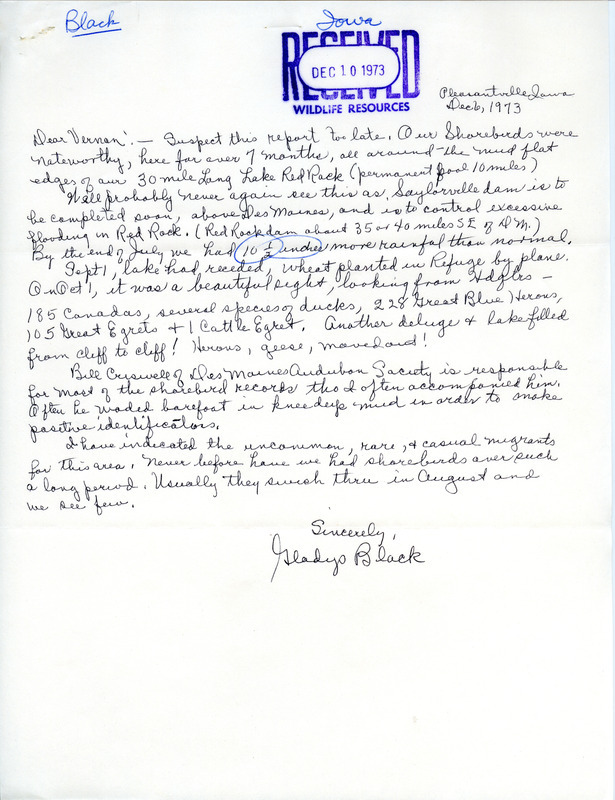 Black
Iowa
RECEIVED
DEC 10 1973
WILDLIFE RESOURCES
Pleasantville, Iowa
Dec 6, 1973
Dear Vernon: — Suspect this report too late. Our Shorebirds were
noteworthy, here for over 7 months, all around the mud flat
edges of our 30 mile long Lake Red Rock (permanent pool 10 miles)
We'll probably never again see this as Saylorville dam is to
be completed soon, above Des Moines, and is to control excessive
flooding in Red Rock. (Red Rock dam about 35 or 40 miles SE of D.M.)
By the end of July we had 10 ½ inches more rainful than normal.
Sept 1, lake had receded, wheat planted in Refuge by plane.
On Oct 1, it was a beautiful sight, looking from Hdqtrs –
185 Canadas, several species of ducks, 228 Great Blue Herons,
105 Great Egrets + 1 Cattle Egret. Another deluge & lake filled
from cliff to cliff! Herons, geese, moved out!
Bill Criswell of Des Moines Audubon Society is responsible
for most of the shorebird records tho I often accompanied him.
Often he waded barefoot in knee deep mud in order to make
positive identifications.
I have indicated the uncommon, rare, & casual migrants
for this area. Never before have we had shorebirds over such
a long period. Usually they swish thru in August and
we see few.
Sincerely,
Gladys Black